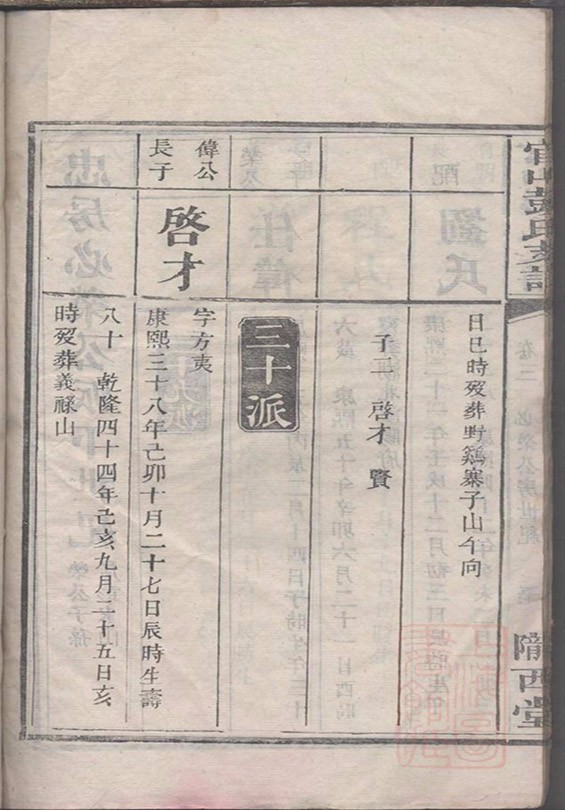 日巳時歿葬野鷄寨子山午向
子二 啓才 賢
三十派
偉公
長子
啓才
字方夷
康熙三十八年己卯十月二十七日辰時生壽
八十 乾隆四十四年己亥九月二十五日亥
時歿葬義祿山
隴西堂